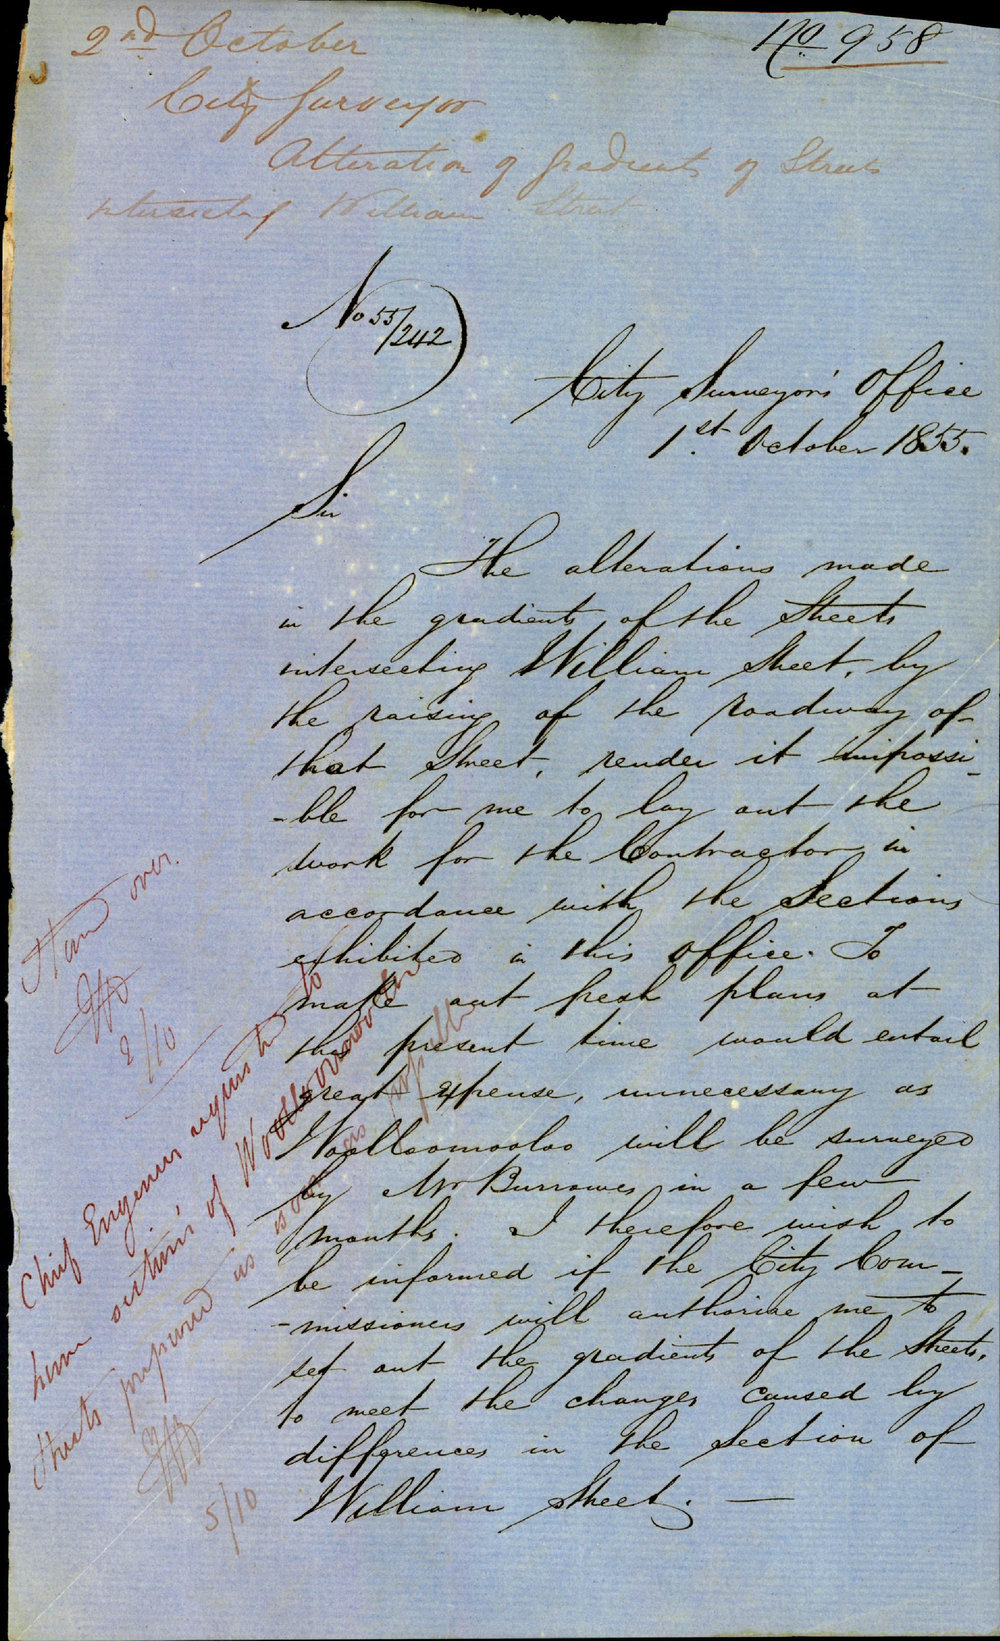 No 958
2nd October
City Surveyor
Alteration of Gradients of Streets
intersecting William Street
No 55/242
City Surveyor's Office
1st October 1855.
Sir
The alterations made
in the gradients of the Streets
intersecting William Street, by
the raising of the roadway of
that Street, render it impossi-
-ble for me to lay out the
work for the Contractor in
accordance with the Sections
exhibited in this Office. To
make out fresh plans at
this present time would entail
great expense, unnecessary as
Woolloomooloo will be surveyed
by Mr Burrowes in a few
months. I therefore wish to
be informed if the City Com-
-missioners will authorise me to
set out the gradients of the Streets,
to meet the changes caused by
differences in the Section of
William Street. —
Stand over.
2/10
Chief Engineer requests to
have sections of Woolloomooloo
Streets prepared as soon as possible
5/10